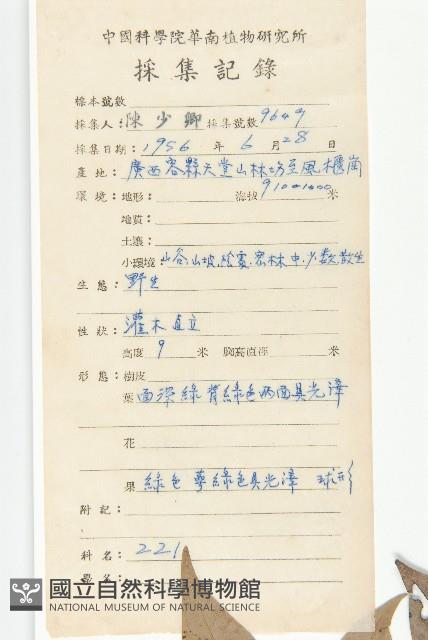 中國科學院華南植物研究所
採集記錄
標本號數
採集人：陳少卿 採集號數 9649
採集日期：1956 年 6 月 28 日
產地：廣西容縣天堂山林場至風櫃崗
環境：地形： 海拔 910-1000 米
地質：
土壤：
小環境：山谷山坡，陰處，密林中，少數散生
生態：野生
性狀：灌木直立
高度 9 米 胸高直徑 米
形態：樹皮
葉 面深綠背綠色兩面具光澤
花
果 綠色 萼綠色具光澤 球形
附記：
科名：221
學名：
國立自然科學博物館
NATIONAL MUSEUM OF NATURAL SCIENCE